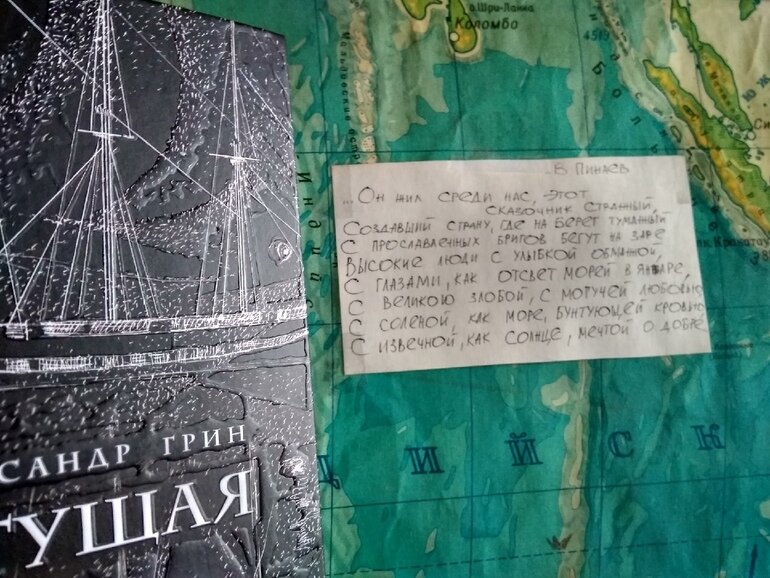 о.Шри-Ланка
Коломбо
4519
В ПИНАЕВ
...ОН ЖИЛ СРЕДИ НАС, ЭТОТ
СКАЗОЧНИК СТРАННЫЙ,
СОЗДАВШИЙ СТРАНУ, ГДЕ НА БЕРЕГ ТУМАННЫЙ
С ПРОСЛАВЛЕННЫХ БРИГОВ БЕГУТ НА ЗАРЕ
ВЫСОКИЕ ЛЮДИ С УЛЫБКОЙ ОБМАННОЙ,
С ГЛАЗАМИ, КАК ОТСВЕТ МОРЕЙ В ЯНВАРЕ,
С ВЕЛИКОЮ ЗЛОБОЙ, С МОГУЧЕЙ ЛЮБОВЬЮ
С СОЛЕНОЙ КАК МОРЕ, БУНТУЮЩЕЙ КРОВЬЮ
С ИЗВЕЧНОЙ, КАК СОЛНЦЕ, МЕЧТОЙ О ДОБРЕ
САНДР ГРИН
ГУЩАЯ
Д И Й С К